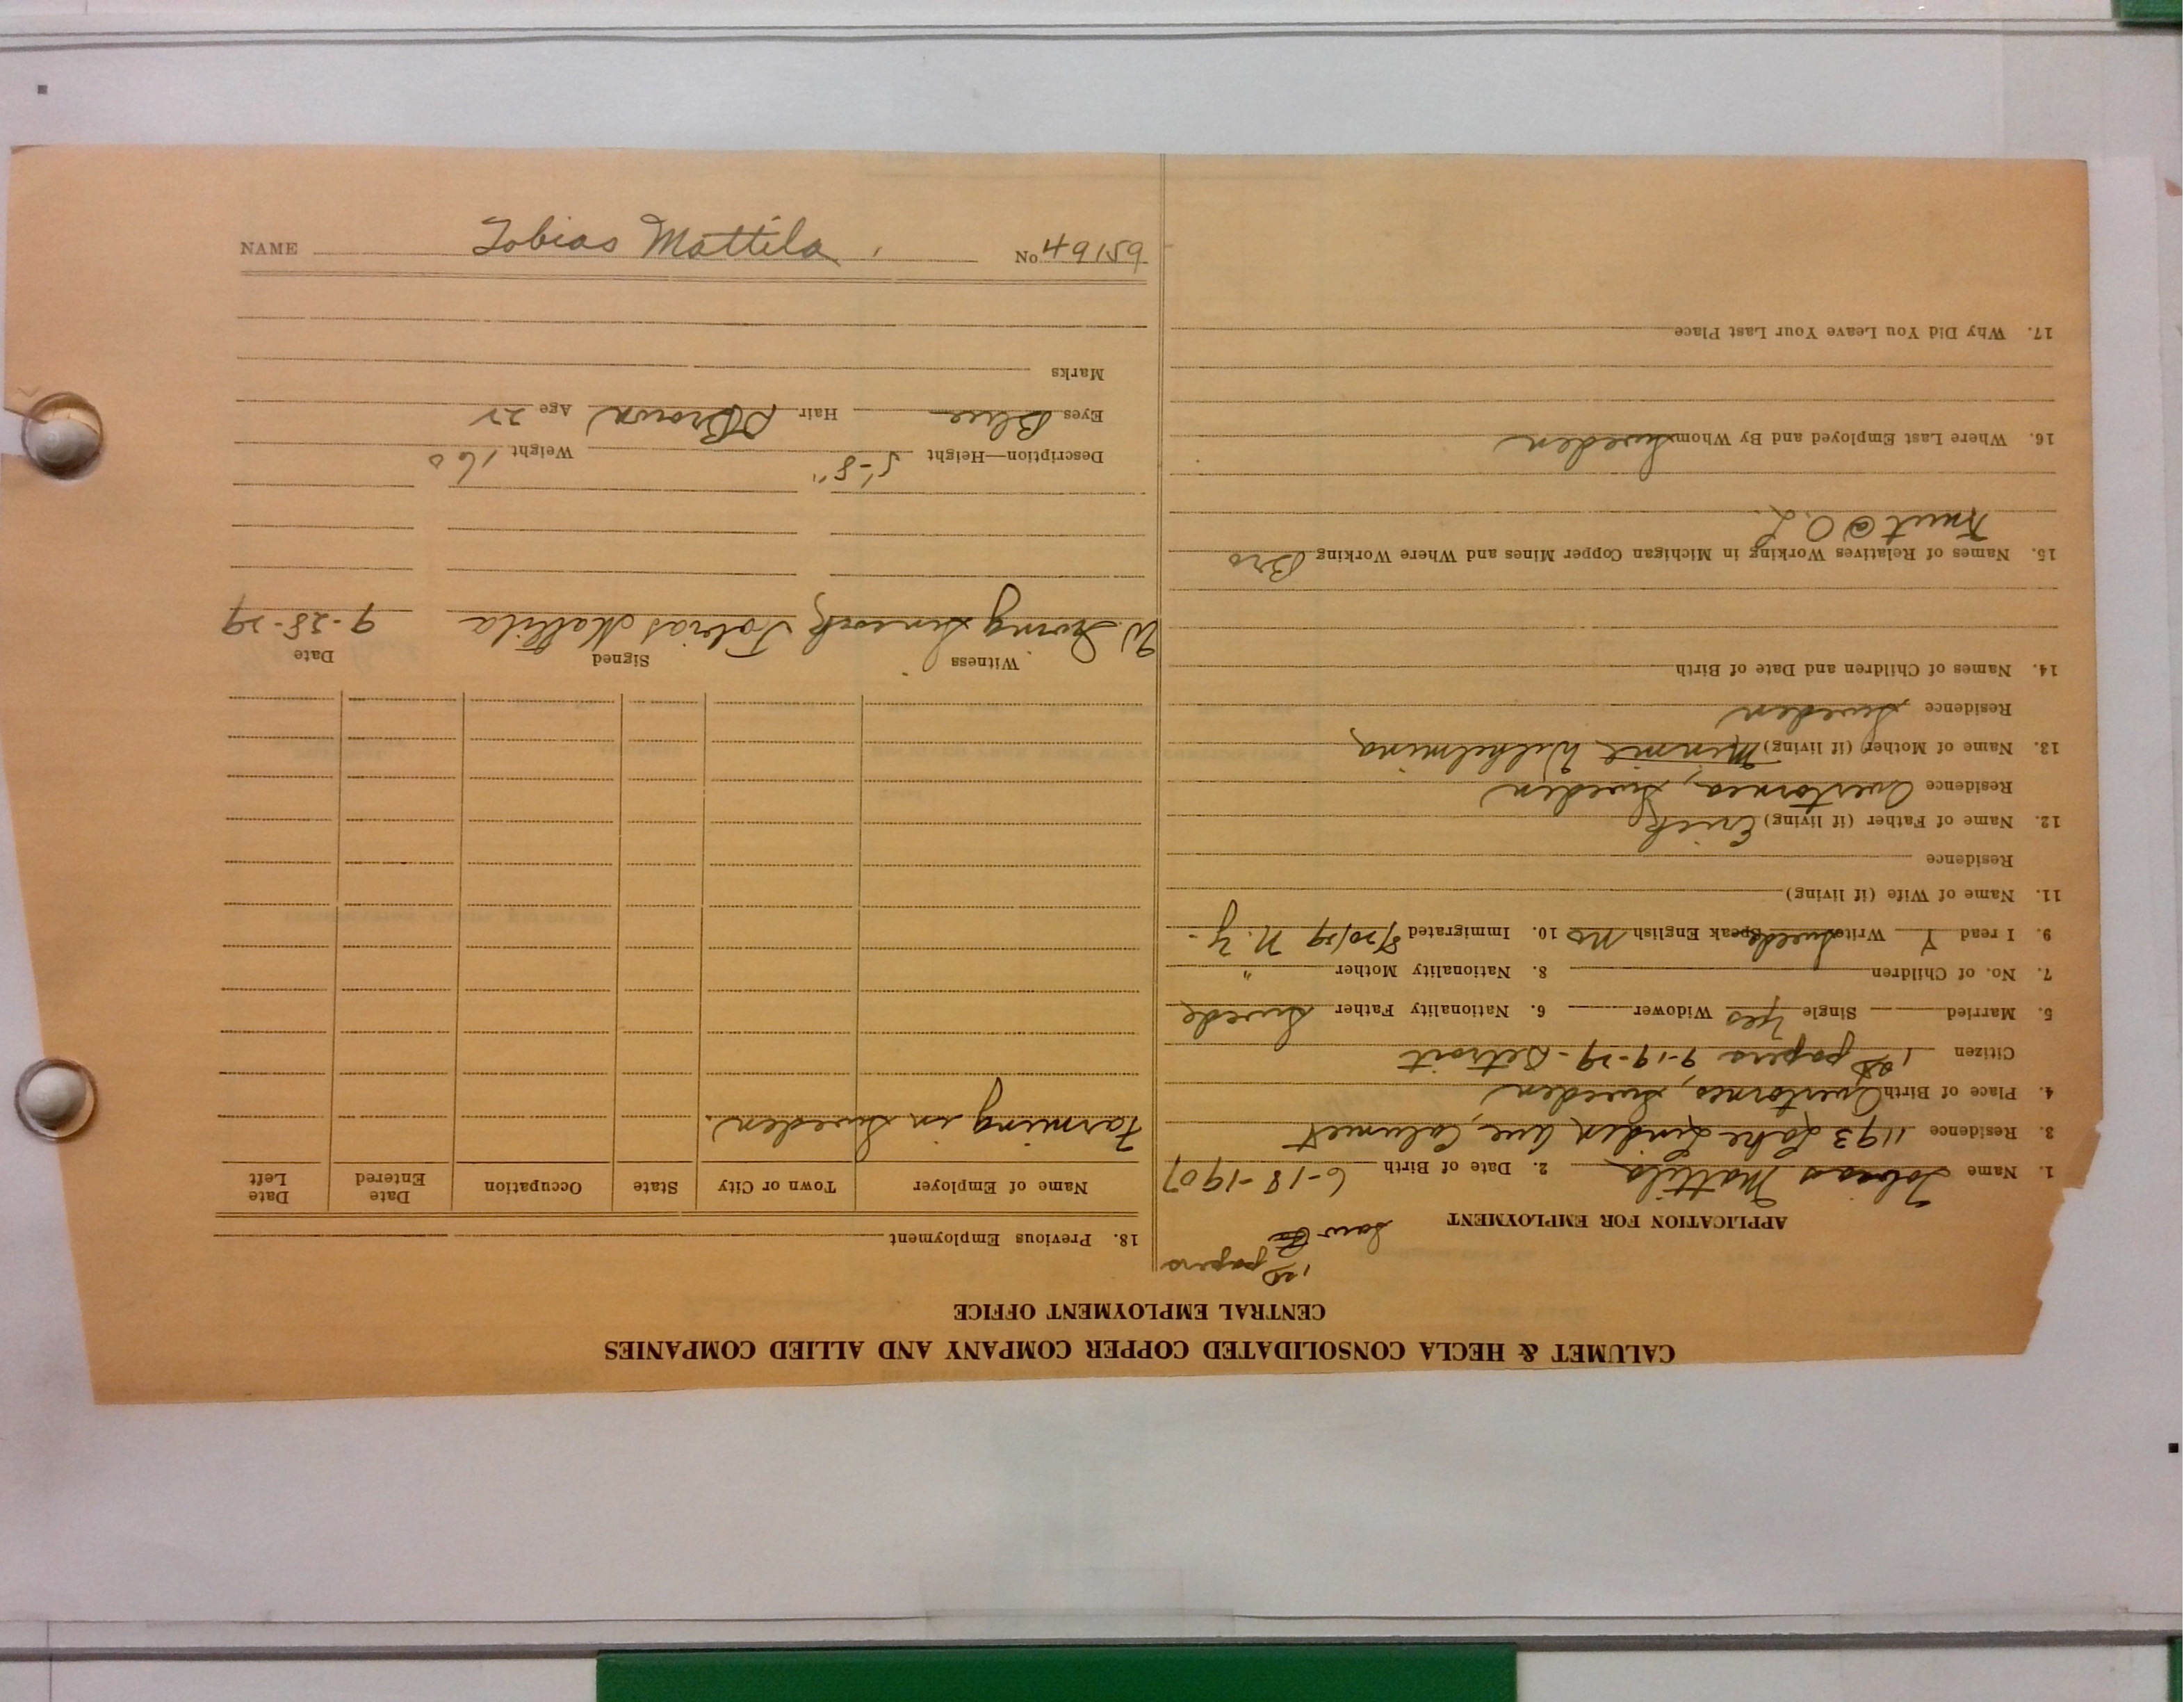 CALUMET & HECLA CONSOLIDATED COPPER COMPANY AND ALLIED COMPANIES
CENTRAL EMPLOYMENT OFFICE
APPLICATION FOR EMPLOYMENT
Saw 1st papers
1. Name Tobias Mattila 2. Date of Birth 6-18-1907
3. Residence 1193 Lake Linden Ave, Calumet
4. Place of Birth Overtornea, Sweden
Citizen 1st papers 9-19-29 - Detroit
5. Married Single Yes Widower 6. Nationality Father Swede
7. No. of Children 8. Nationality Mother "
9. I read Y Write Swede Speak English No 10. Immigrated 8/20/29 N.Y.
11. Name of Wife (if living)
Residence
12. Name of Father (if living) Erick
Residence Overtornea, Sweden
13. Name of Mother (if living) Minnie Wilhelmina
Residence Sweden
14. Names of Children and Date of Birth
15. Names of Relatives Working in Michigan Copper Mines and Where Working Bro
Knut @ O.L.
16. Where Last Employed and By Whom Sweden
17. Why Did You Leave Your Last Place
18. Previous Employment
Name of Employer Town or City State Occupation Date Entered Date Left
Farming in Sweden.
Witness Signed Date
W. Irving Tobias Mattila 9-28-29
Description—Height 5'-8" Weight 160
Eyes Blue Hair D Brown Age 22
Marks
NAME Tobias Mattila No 49159